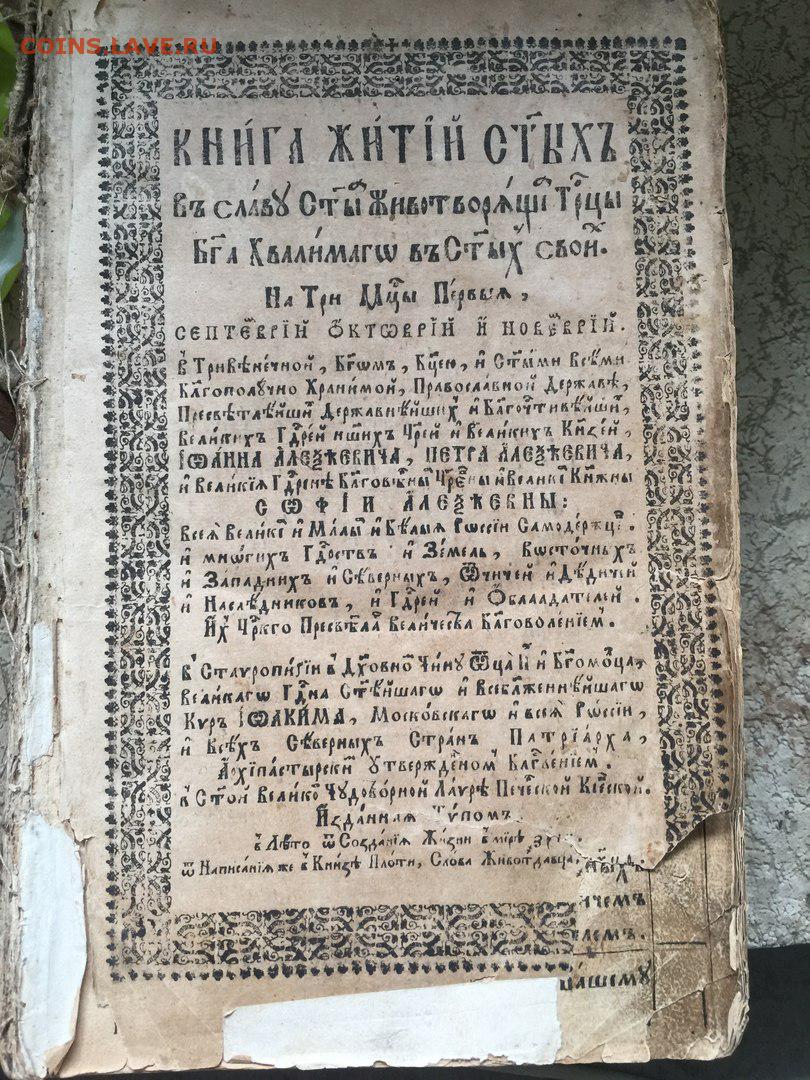 COINS.LAVE.RU
КНИ́ГА ЖИ́ТІЙ СТ҃ЫХЪ
Въ сла́ву Ст҃ы́ѧ Живѡтворѧ́щїѧ Трⷪ҇цы
Бг҃а Хвали́магѡ въ Ст҃ы́хъ свои́хъ.
На Три Мцⷭ҇ы Пе́рвыѧ,
СЕПТЕ́ВРІЙ ѺКТѠ́ВРІЙ И҆ НОВЕ́ВРІЙ.
в Тривѣ́нечной, Бг҃омъ, Бц҃ею, и҆ Ст҃ы́ми Всѣ́ми
Бл҃гополу́чно Храни́мой, Правосла́вной Держа́вѣ,
Пресвѣ́тлѣйшихъ Держа́внѣйшихъ и҆ Бл҃гочⷭ҇ти́вѣйшихъ,
Вели́кихъ Гдⷭ҇ре́й на́шихъ Цр҃е́й и҆ Вели́кихъ Кнѧзе́й,
ІѠА́ННА АЛЕѮѢ́ЕВИЧА, ПЕТРА АЛЕѮѢ́ЕВИЧА,
и҆ Вели́кїѧ Гдⷭ҇ры́нѣ Бл҃говѣ́рныѧ Цр҃е́вны и҆ Вели́кїѧ Кнѧжны̀
СѠФІИ АЛЕѮѢ́ЕВНЫ:
Всеѧ̀ Вели́кїѧ и҆ Ма́лыѧ и҆ Бѣ́лыѧ Рѡссі́и Самоде́ржцєвъ.
и҆ мнѡ́гихъ Гдⷭ҇рствъ и҆ Земе́ль, Восто́чныхъ
и҆ За́падныхъ и҆ Сѣ́верныхъ, Ѿчичей и҆ Дѣ́дичей
и҆ Наслѣ́дниковъ, и҆ Гдⷭ҇ре́й и҆ Ѻблада́телей.
И҆́хъ Цр҃кго Пресвѣ́тлагѡ Вели́чества Бл҃говоле́нїемъ.
в Ставропи́гїи в Дх҃о́вномъ Чи́ну Ѿца̀ и҆ Бг҃омо́лца,
вели́кагѡ Гдⷭ҇и́на Ст҃ѣ́йшагѡ и҆ Всебл҃же́ннѣйшагѡ
Курѣ ІѠАКИ́МА, Моско́вскагѡ и҆ всеѧ̀ Рѡссі́и,
и҆ всѣ́хъ Сѣ́верныхъ Стра́нъ Патрїа́рха,
А҆рхїпа́стырскимъ ᲂутвержде́нїемъ Бл҃гⷭ҇ве́нїемъ.
в Ст҃о́й вели́кой Чудотво́рной Ла́ѵрѣ Пече́рской Кі́евской.
И҆зда́ннаѧ Тѵ́помъ.
в Лѣ́то ѿ Созда́нїѧ Жи́зни в мі́рѣ
ѿ Написа́нїѧ же в Кни́зѣ Пло́ти, Сло́ва Живота̀да́вца,